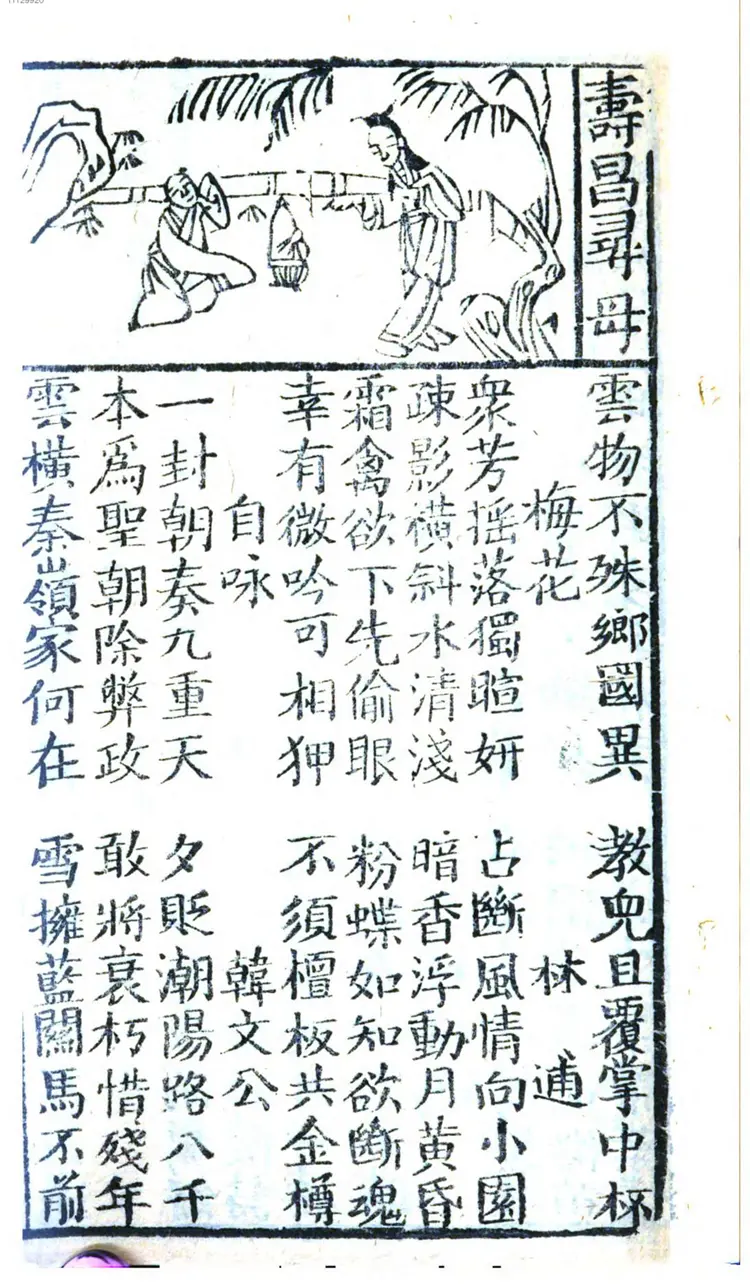 11129920
壽昌尋母
雲物不殊鄉國異 教兒且覆掌中杯
梅花 林逋
衆芳揺落獨暄妍 占斷風情向小園
疎影橫斜水清淺 暗香浮動月黄昏
霜禽欲下先偷眼 粉蝶如知欲斷魂
幸有微吟可相狎 不須檀板共金樽
自咏 韓文公
一封朝奏九重天 夕貶潮陽路八千
本爲聖朝除弊政 敢將衰朽惜殘年
雲橫秦嶺家何在 雪擁藍關馬不前